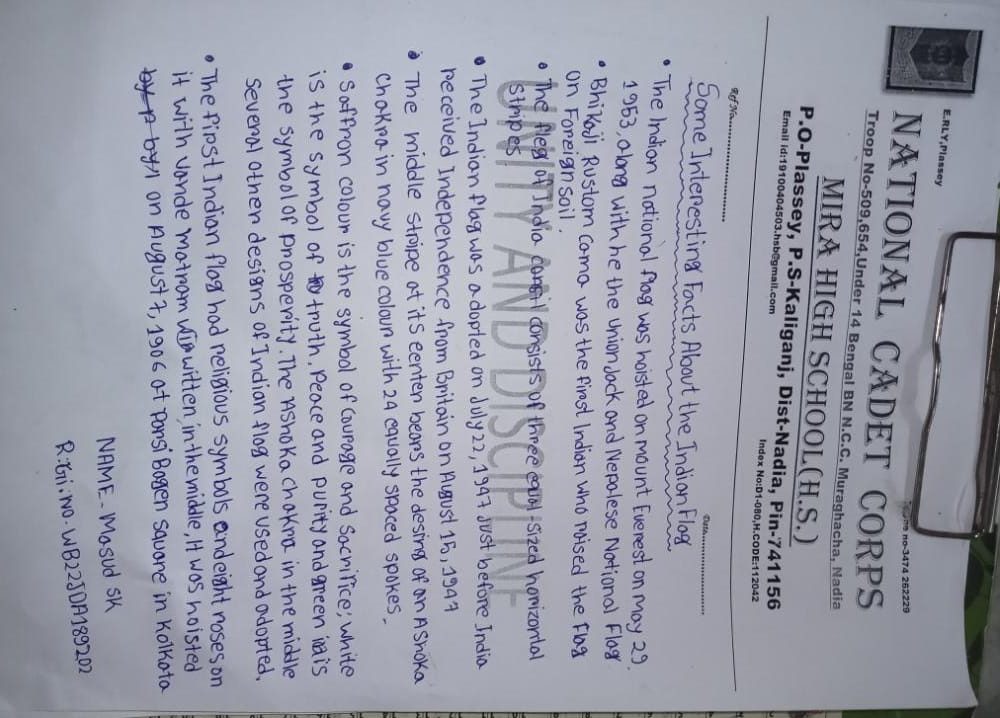 E.RLY, Plassey
Phone no-3474 262229
NATIONAL CADET CORPS
Troop No-509,654,Under 14 Bengal BN N.C.C. Muraghacha, Nadia
MIRA HIGH SCHOOL(H.S.)
P.O-Plassey, P.S-Kaliganj, Dist-Nadia, Pin-741156
Email id:19100404503.hsb@gmail.com Index No:D1-080,H.CODE:112042
Ref No. Date
Some Interesting Facts About the Indian Flag
• The Indian national flag was hoisted on mount Everest on May 29.
1953, along with he the Union Jack and Nepalese National Flag
• Bhikaiji Rustom cama was the first Indian who raised the flag
on Foreign soil.
• The fleg of India consil consists of three equal-sized horizontal
stripes.
UNITY AND DISCIPLINE
• The Indian flag was adopted on July 22, 1947 just before India
received Independence from Britain on August 15, 1947
• The middle stripe at it's center bears the desing of an Ashoka
chakra in navy blue colour with 24 equally spaced spokes.
• Saffron colour is the symbol of Courage and Sacrifice; white
is the symbol of truth, Peace and purity and green is
the symbol of prosperity. The Ashoka chakra in the middle
several other designs of Indian flag were used and adopted.
• The first Indian flag had religious symbols and eight roses on
it with vande matram written, in the middle, It was hoisted
on August 7, 1906 at Parsi Bagen square in Kolkata
NAME - Masud SK
R.Gi. No - WB22JDA189202